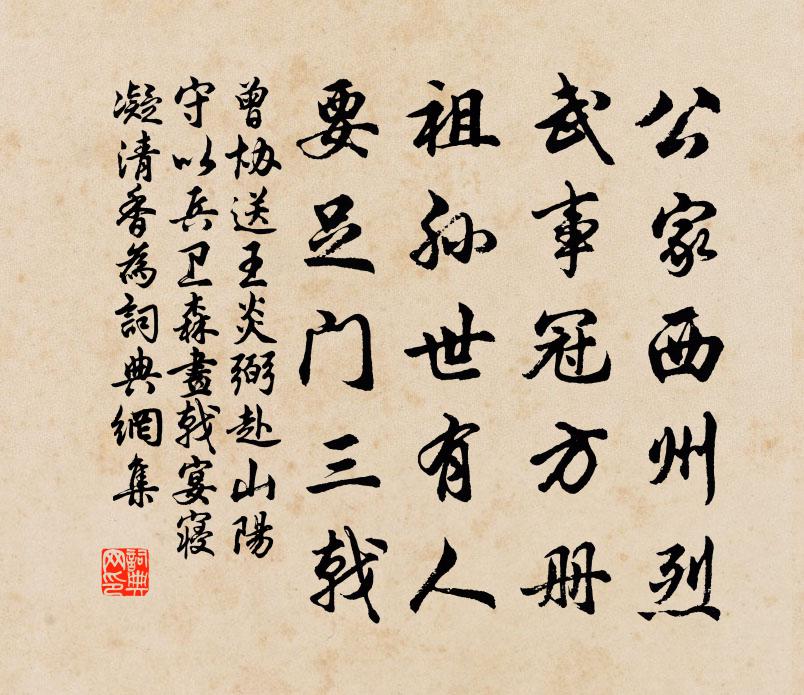 公家西州烈
武事冠方册
祖孙世有人
要足门三戟
曾协送王炎弼赴山陽
守以兵卫森畫戟宴寝
凝清香為詞典網集
詞典网印